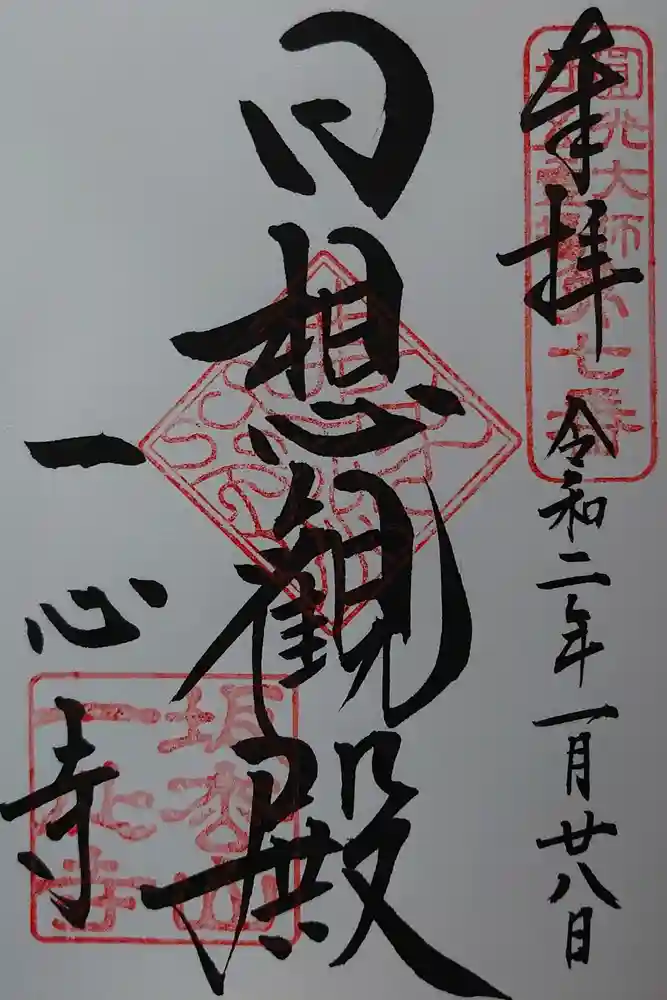 奉拝
令和二年一月廿八日
圓光大師
第七番
日想観殿
一心寺
坂松山
一心寺